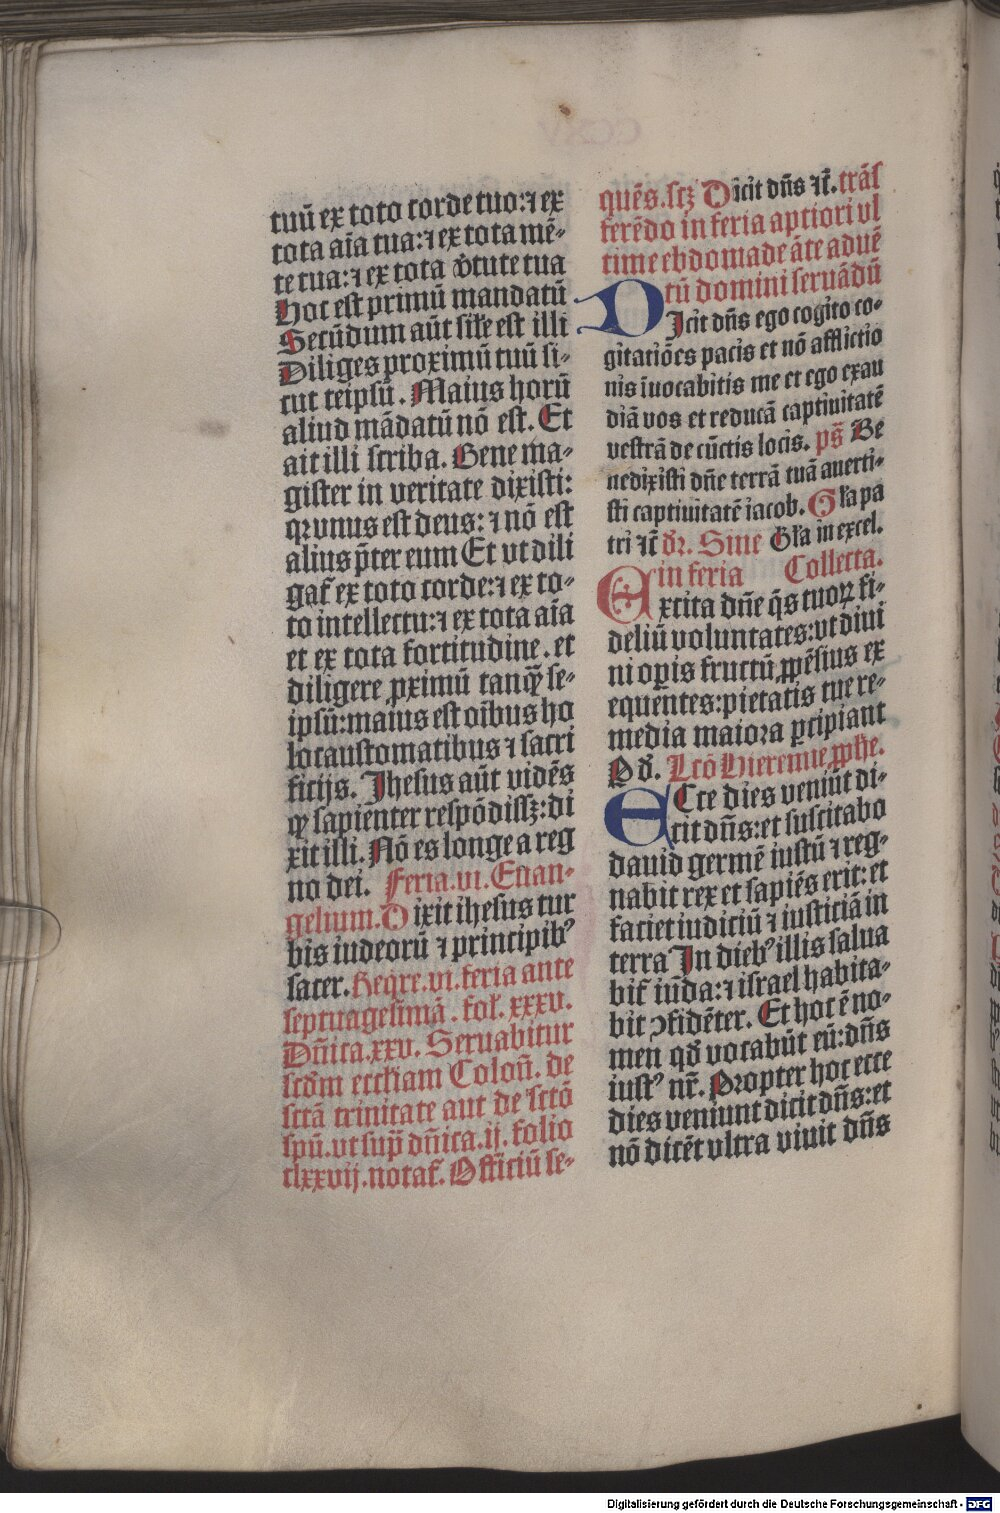 tuū ex toto corde tuo: ⁊ ex
tota aīa tua: ⁊ ex tota mē-
te tua: ⁊ ex tota v̄tute tua
Hoc est primū mandatū
Secūdum aūt sīle est illi
Diliges proximū tuū si-
cut teipsū. Maius horū
aliud mādatū nō est. Et
ait illi scriba. Bene ma-
gister in veritate dixisti:
qꝛ vnus est deus: ⁊ nō est
alius p̄ter eum Et vt dili
gat᷑ ex toto corde: ⁊ ex to-
to intellectu: ⁊ ex tota aīa
et ex tota fortitudine. et
diligere ꝓximū tanqȝ se-
ipsū: maius est oībus ho
locaustomatibus ⁊ sacri
ficijs. Jhesus aūt vidēs
qȝ sapienter respōdissȝ: di
xit illi. Nō es longe a reg
no dei. Feria. vi. Euan-
gelium. Dixit ihesus tur
bis iudeorū ⁊ principibꝰ
sacer. Req̄re. vi. feria ante
septuagesimā. fol. xxxv.
Dn̄ica. xxv. Seruabitur
scd̄m eccl̄iam Colon̄. de
sctā trinitate aut de sctō
spū. vt sup̄ dn̄ica. ij. folio
clxxvij. notat᷑. Offīciū se-
quēs. scȝ Dicit dn̄s ⁊c̄. trās
ferēdo in feria aptiori vl
time ebdomade āte aduē
tū domini seruādū
DJcit dn̄s ego cogito co-
gitatiōes pacis et nō afflictio
nis īuocabitis me et ego exau
diā vos et reducā captiuitatē
vestrā de cūctis locis. ps̄ Be
nedixisti dn̄e terrā tuā auerti-
sti captiuitatē iacob. Gl̄a pa
tri ⁊c̄ dr̄. Sine Gl̄a in excel.
in feria Collecta.
Excita dn̄e q̄s tuoꝝ fi-
deliū voluntates: vt diui
ni oꝑis fructū ꝓpēsius ex
equentes: pietatis tue re-
media maiora ꝑcipiant
P d̄. Lcō Hieremie ꝓphe.
ECce dies veniūt di-
cit dn̄s: et suscitabo
dauid germē iustū ⁊ reg-
nabit rex et sapiēs erit: et
faciet iudiciū ⁊ iusticiā in
terra Jn diebꝰ illis salua
bit᷑ iuda: ⁊ israel habita-
bit ↄfidēter. Et hoc ē no-
men qd̄ vocabūt eū: dn̄s
iustꝰ nr̄. Propter hoc ecce
dies veniunt dicit dn̄s: et
nō dicēt vltra viuit dn̄s
Digitalisierung gefördert durch die Deutsche Forschungsgemeinschaft - DFG